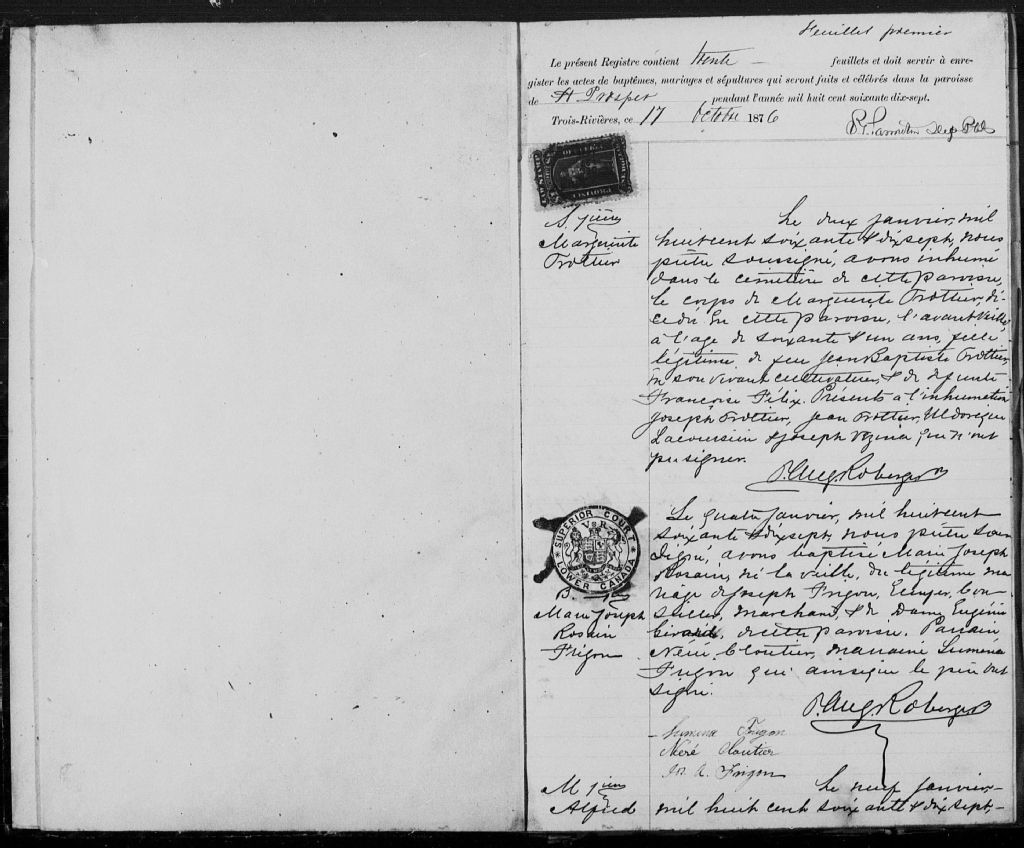 Feuillet premier
Le présent Registre contient trente feuillets et doit servir à enre-
gister les actes de baptêmes, mariages et sépultures qui seront faits et célébrés dans la paroisse
de St Prosper pendant l'année mil huit cent soixante dix-sept.
Trois-Rivières, ce 17 Octobre 1876
Dep
S. 1ière
Marguerite
Trottier
Le deux janvier, mil
huit cent soixante & dix sept, nous
prêtre soussigné, avons inhumé
dans le cimetière de cette paroisse,
le corps de Marguerite Trottier, dé-
cédé en cette paroisse, l'avant veille
à l'age de soixante & un ans, fille
légitime de feu Jean Baptiste Trottier,
en son vivant cultivateur, & de défunte
Françoise Félix. Présents à l'inhumation
Joseph Trottier, Jean Trottier,
Lacoursière & Joseph Vezina qui n'ont
pu signer.
P. Aug. Roberge Ptre
SUPERIOR COURT
V R
LOWER CANADA
B. 1er
Marie Joseph
Rosain
Frigon
Le quatre janvier, mil huit cent
soixante & dix sept, nous prêtre sous
signé, avons baptisé Marie Joseph
Rosain, né la veille, du légitime ma
riage de Joseph Frigon, Ecuyer, Con
seiller, marchand, & de Dame Eugénie
de cette paroisse. Parrain
Néré Cloutier, marraine Lumena
Frigon qui ainsi que le père ont
signé.
P. Aug. Roberge Ptre
Lumena Frigon
Néré Cloutier
Jos. A. Frigon
M 1ier
Alfred
Le neuf janvier
mil huit cent soixante & dix sept,